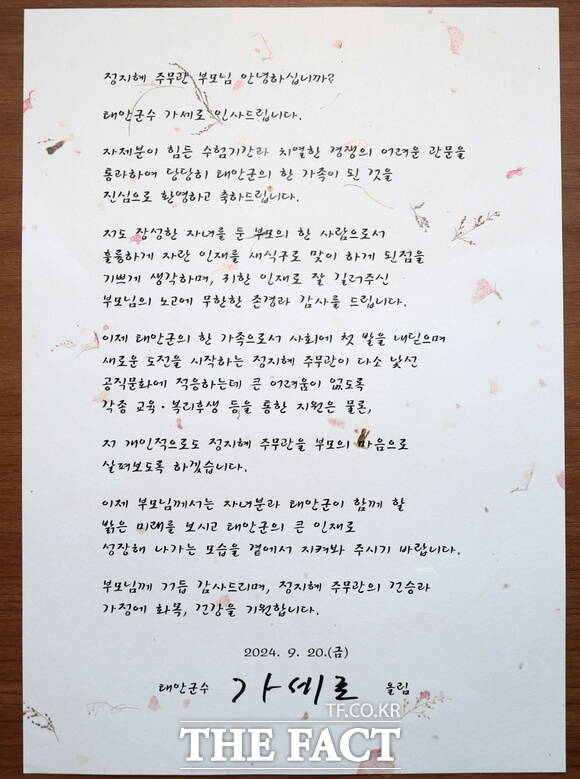 정지혜 주무관 부모님 안녕하십니까?
태안군수 가세로 인사드립니다.
자제분이 힘든 수험기간과 치열한 경쟁의 어려운 관문을
통과하여 당당히 태안군의 한 가족이 된 것을
진심으로 환영하고 축하드립니다.
저도 장성한 자녀를 둔 부모의 한 사람으로서
훌륭하게 자란 인재를 새식구로 맞이 하게 된점을
기쁘게 생각하며, 귀한 인재로 잘 길러주신
부모님의 노고에 무한한 존경과 감사를 드립니다.
이제 태안군의 한 가족으로서 사회에 첫 발을 내딛으며
새로운 도전을 시작하는 정지혜 주무관이 다소 낯선
공직문화에 적응하는데 큰 어려움이 없도록
각종 교육·복리후생 등을 통한 지원은 물론,
저 개인적으로도 정지혜 주무관을 부모의 마음으로
살펴보도록 하겠습니다.
이제 부모님께서는 자녀분과 태안군이 함께 할
밝은 미래를 보시고 태안군의 큰 인재로
성장해 나가는 모습을 곁에서 지켜봐 주시기 바랍니다.
부모님께 거듭 감사드리며, 정지혜 주무관의 건승과
가정에 화목, 건강을 기원합니다.
2024. 9. 20.(금)
태안군수 가세로 올림
TF.CO.KR
THE FACT